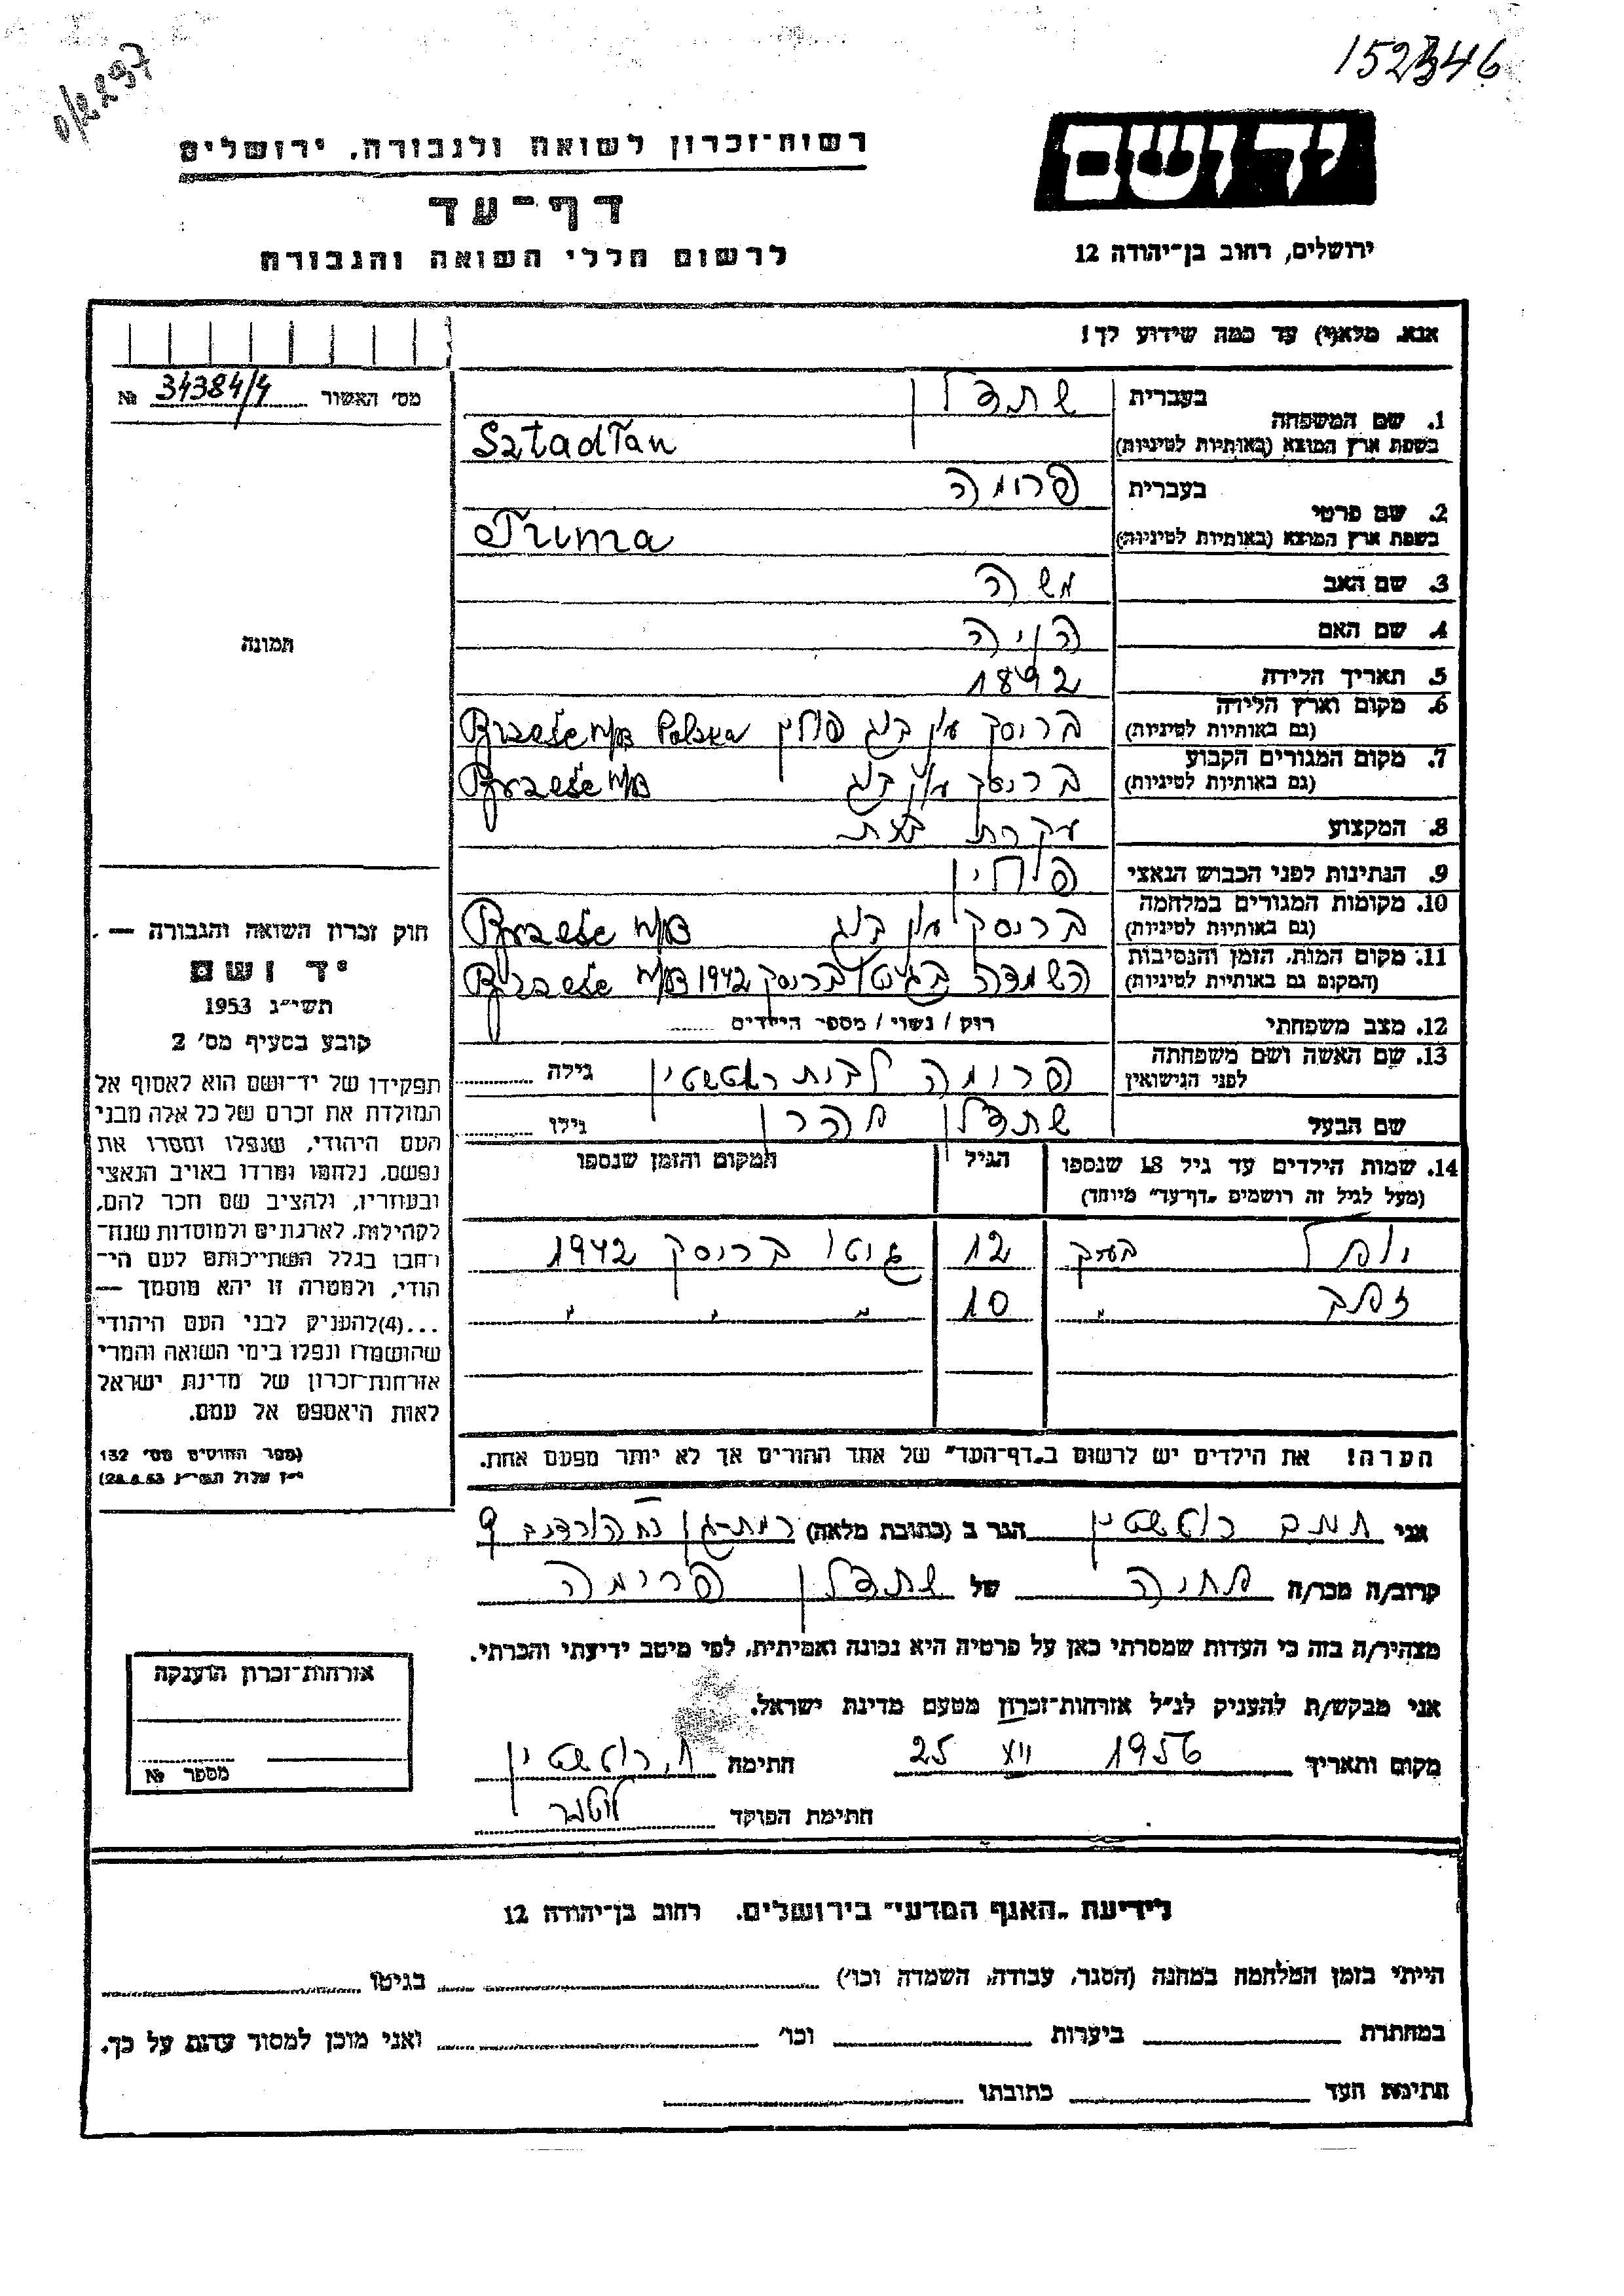 152346
0/2297
יד ושם
רשות-זכרון לשואה ולגבורה, ירושלים
דף-עד
לרשום חללי השואה והגבורה
ירושלים, רחוב בן-יהודה 12
אנא, מלא(י) עד כמה שידוע לך!
מס' האשור 34384/4 №
1. שם המשפחה
בעברית שתדלן
בשפת ארץ המוצא (באותיות לטיניות) Sztadłan
2. שם פרטי
בעברית פרומה
בשפת ארץ המוצא (באותיות לטיניות) Fruma
3. שם האב משה
4. שם האם
5. תאריך הלידה 1892
6. מקום וארץ הלידה
(גם באותיות לטיניות) בריסק על בוג פולין Brześć n/B Polska
7. מקום המגורים הקבוע
(גם באותיות לטיניות) בריסק על בוג Brześć n/B
8. המקצוע עקרת בית
9. הנתינות לפני הכבוש הנאצי פולין
10. מקומות המגורים במלחמה
(גם באותיות לטיניות) בריסק על בוג Brześć n/B
11. מקום המות, הזמן והנסיבות
(המקום גם באותיות לטיניות) השמדה בגיטו בריסק 1942 Brześć n/B
12. מצב משפחתי רוק / נשוי / מספר הילדים
13. שם האשה ושם משפחתה
לפני הנישואין פרומה לבית רוטשטין גילה
שם הבעל שתדלן אהרן גילו
14. שמות הילדים עד גיל 18 שנספו
(מעל לגיל זה רושמים "דף-עד" מיוחד)
הגיל
המקום והזמן שנספו
12 גיטו בריסק 1942
זלדה " 10 " " "
הערה! את הילדים יש לרשום ב"דף-העד" של אחד ההורים אך לא יותר מפעם אחת.
תמונה
חוק זכרון השואה והגבורה —
יד ושם
תשי"ג 1953
קובע בסעיף מס' 2
תפקידו של יד-ושם הוא לאסוף אל
המולדת את זכרם של כל אלה מבני
העם היהודי, שנפלו ומסרו את
נפשם, נלחמו ומרדו באויב הנאצי
ובעוזריו, ולהציב שם וזכר להם,
לקהילות, לארגונים ולמוסדות שנח-
רחבו בגלל השתייכותם לעם הי-
הודי, ולמטרה זו יהא מוסמך —
...(4) להעניק לבני העם היהודי
שהושמדו ונפלו בימי השואה והמרי
אזרחות-זכרון של מדינת ישראל
לאות היאספם אל עמם.
(ספר החוקים מס' 132
י"ז אלול תשי"ג 28.8.53)
אני רוטשטין הגר ב (כתובת מלאה) רמת-גן 9
קרוב/ה מכר/ה של שתדלן פרומה
מצהיר/ה בזה כי העדות שמסרתי כאן על פרטיה היא נכונה ואמיתית, לפי מיטב ידיעתי והכרתי.
אני מבקש/ת להעניק לנ"ל אזרחות-זכרון מטעם מדינת ישראל.
מקום ותאריך 25 VII 1956 חתימה רוטשטין
חתימת הפוקד
אזרחות-זכרון הוענקה
מספר №
לידיעת "האגף המדעי" בירושלים, רחוב בן-יהודה 12
הייתי בזמן המלחמה במחנה (הסגר, עבודה, השמדה וכו') בגיטו
במחתרת ביערות וכו' ואני מוכן למסור עדות על כך.
חתימת העד כתובתו